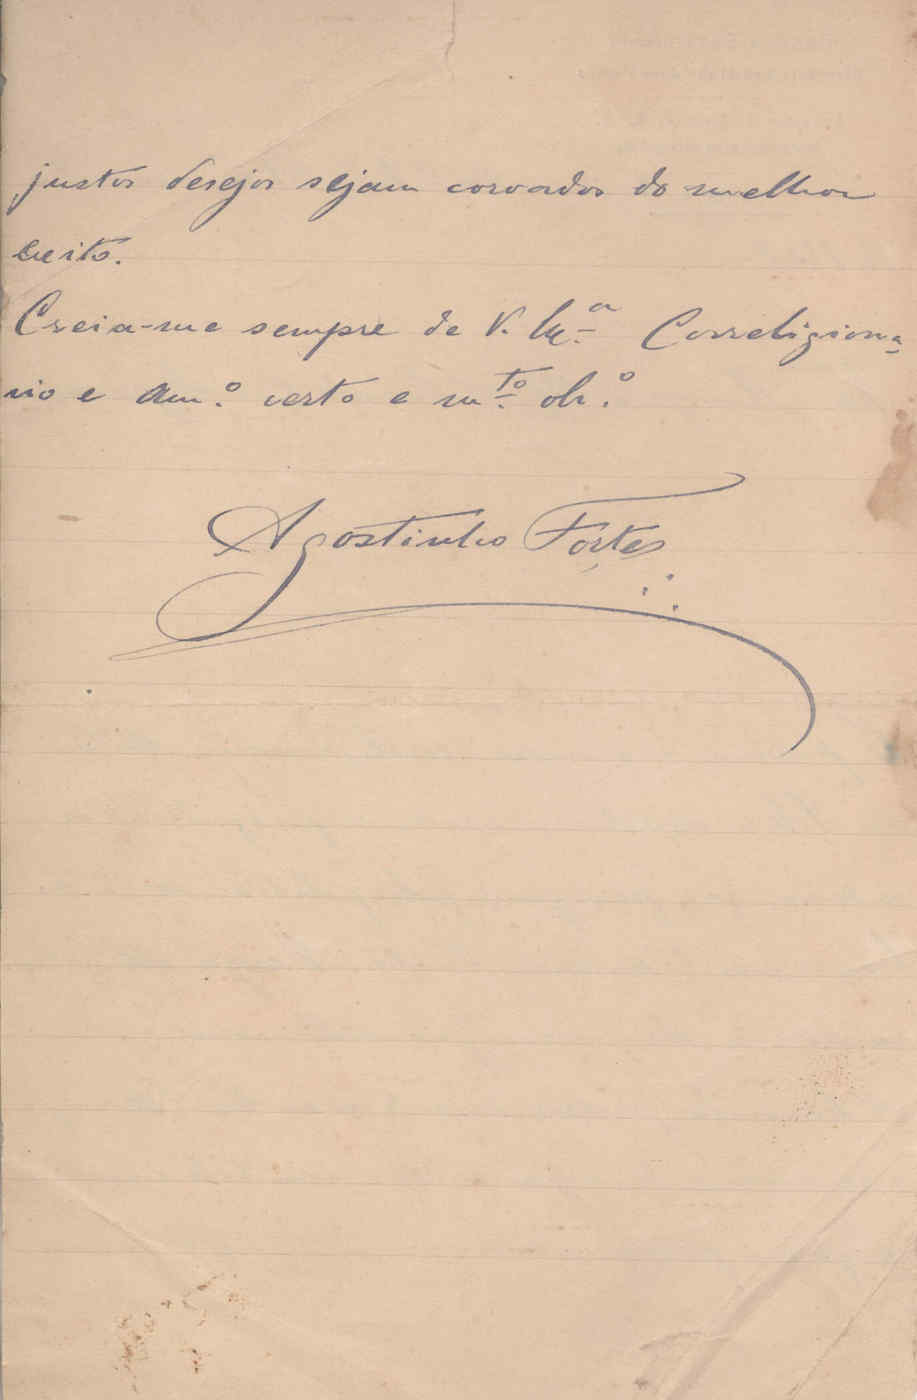 justos desejos sejam coroados do melhor
exito.
Creia-me sempre de V. Ex.ª Correligiona-
rio e am.º certo e m.to ob.º
Agostinho Fortes